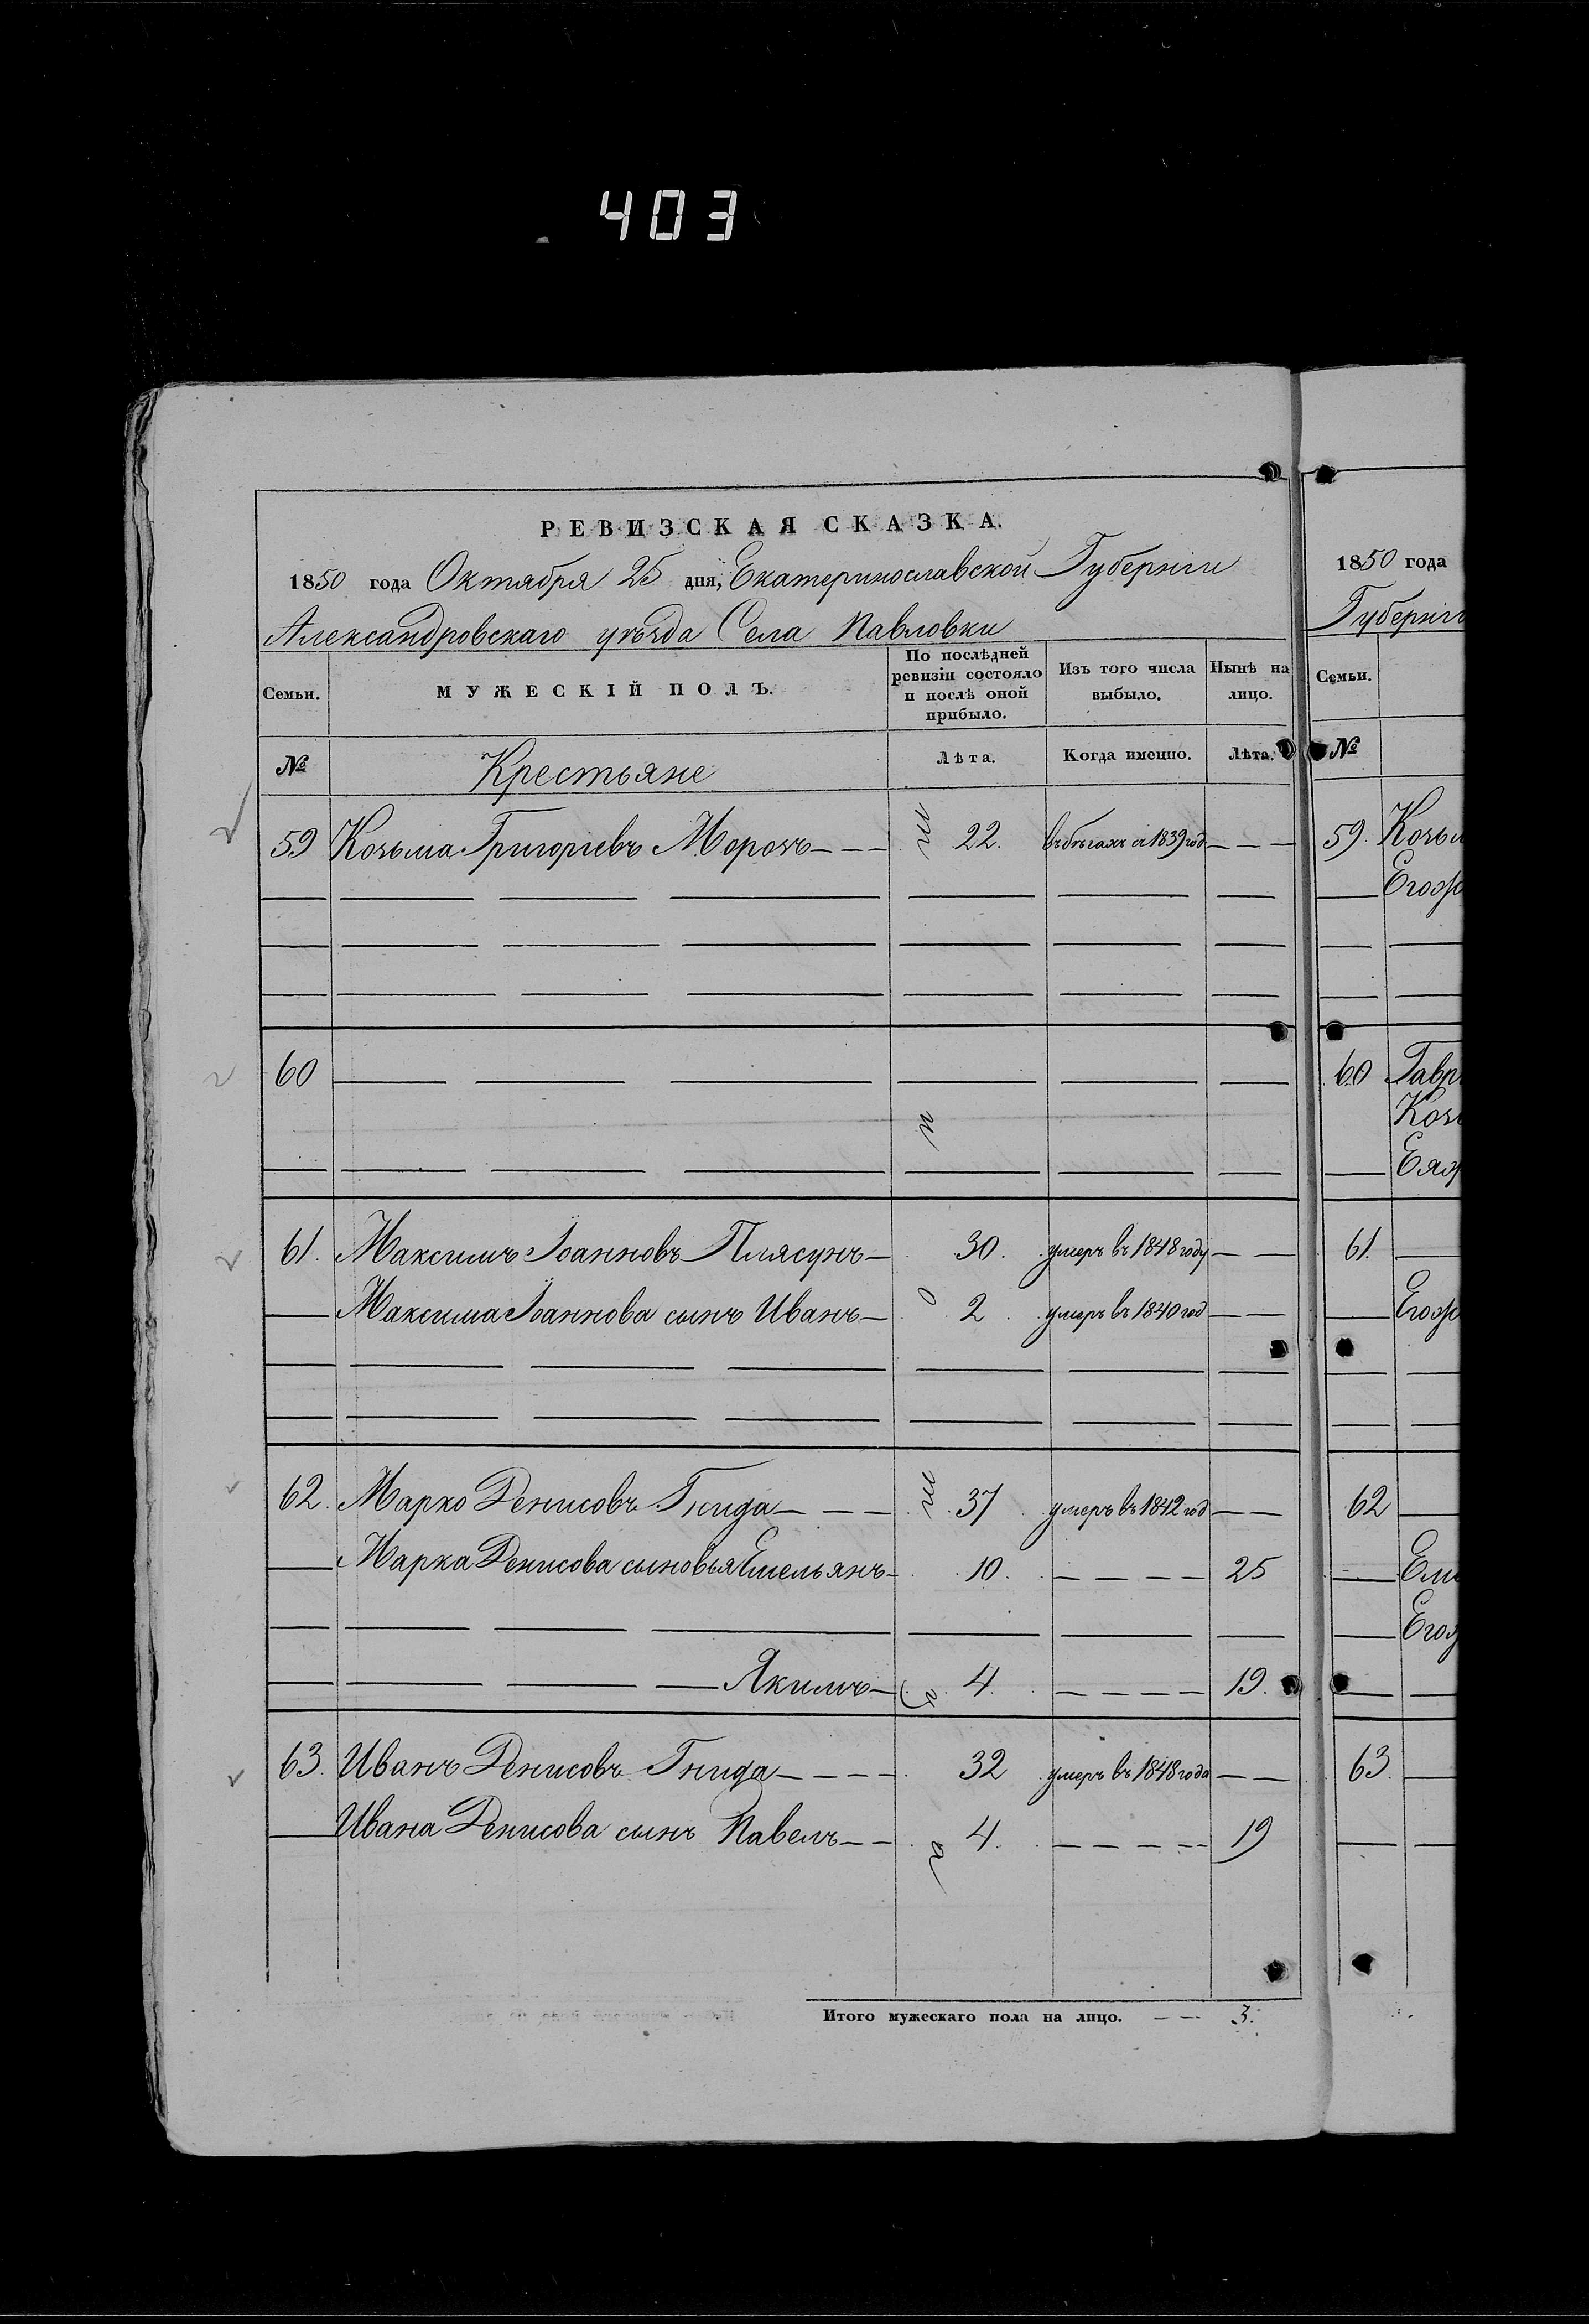 403
РЕВИЗСКАЯ СКАЗКА.
1850 года Октября 25 дня, Екатеринославской Губернiи
Александровскаго уѣзда Села Павловки
Семьи. МУЖЕСКІЙ ПОЛЪ. По послѣдней ревизіи состояло и послѣ оной прибыло. Изъ того числа выбыло. Нынѣ на лицо.
№ Крестьяне Лѣта. Когда именно. Лѣта.
59 Козьма Григорiевъ Морозъ 22. въ бѣгахъ съ 1839 год
60
61. Максимъ Іоанновъ Плясунъ 30. умеръ въ 1848 году
Максима Іоаннова сынъ Иванъ 2 умеръ въ 1840 год
62. Марко Денисовъ Гнида 37 умеръ въ 1842 год
Марка Денисова сыновья Емельянъ 10. 25
Якимъ 4. 19.
63. Иванъ Денисовъ Гнида 32 умеръ въ 1848 года
Ивана Денисова сынъ Павелъ 4. 19
Итого мужескаго пола на лицо. 3.
1850 года
Губернiи
Семьи.
№
59. Козьм
Егож
60 Гавр
Козь
Еяж
61.
Егож
62
Еме
Егож
63.